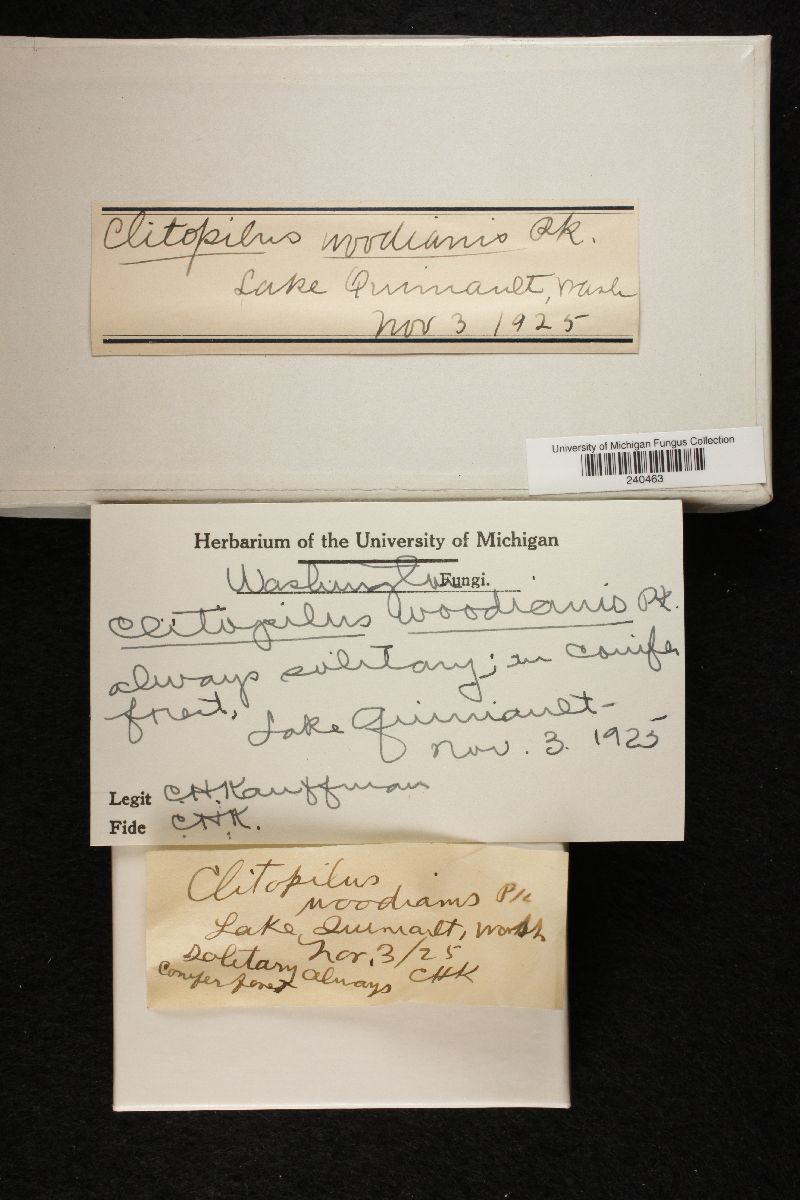 Clitopilus woodianis Pk.
Lake Quiniault, Wash
Nov 3 1925
University of Michigan Fungus Collection
240463
Herbarium of the University of Michigan
Washington
Fungi.
Clitopilus woodianis Pk.
always solitary; in conifer
forest,
Lake Quiniault
Nov. 3. 1925
Legit C.H. Kauffman
Fide C.H.K.
Clitopilus
woodianis Pk
Lake Quiniault, Wash
Solitary Nov. 3/25
conifer forest always CHK